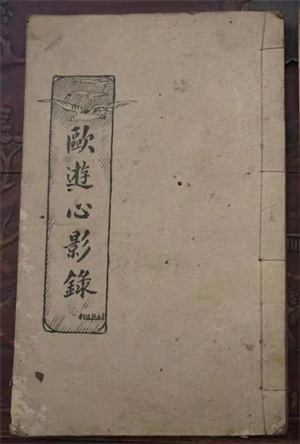 歐遊心影錄